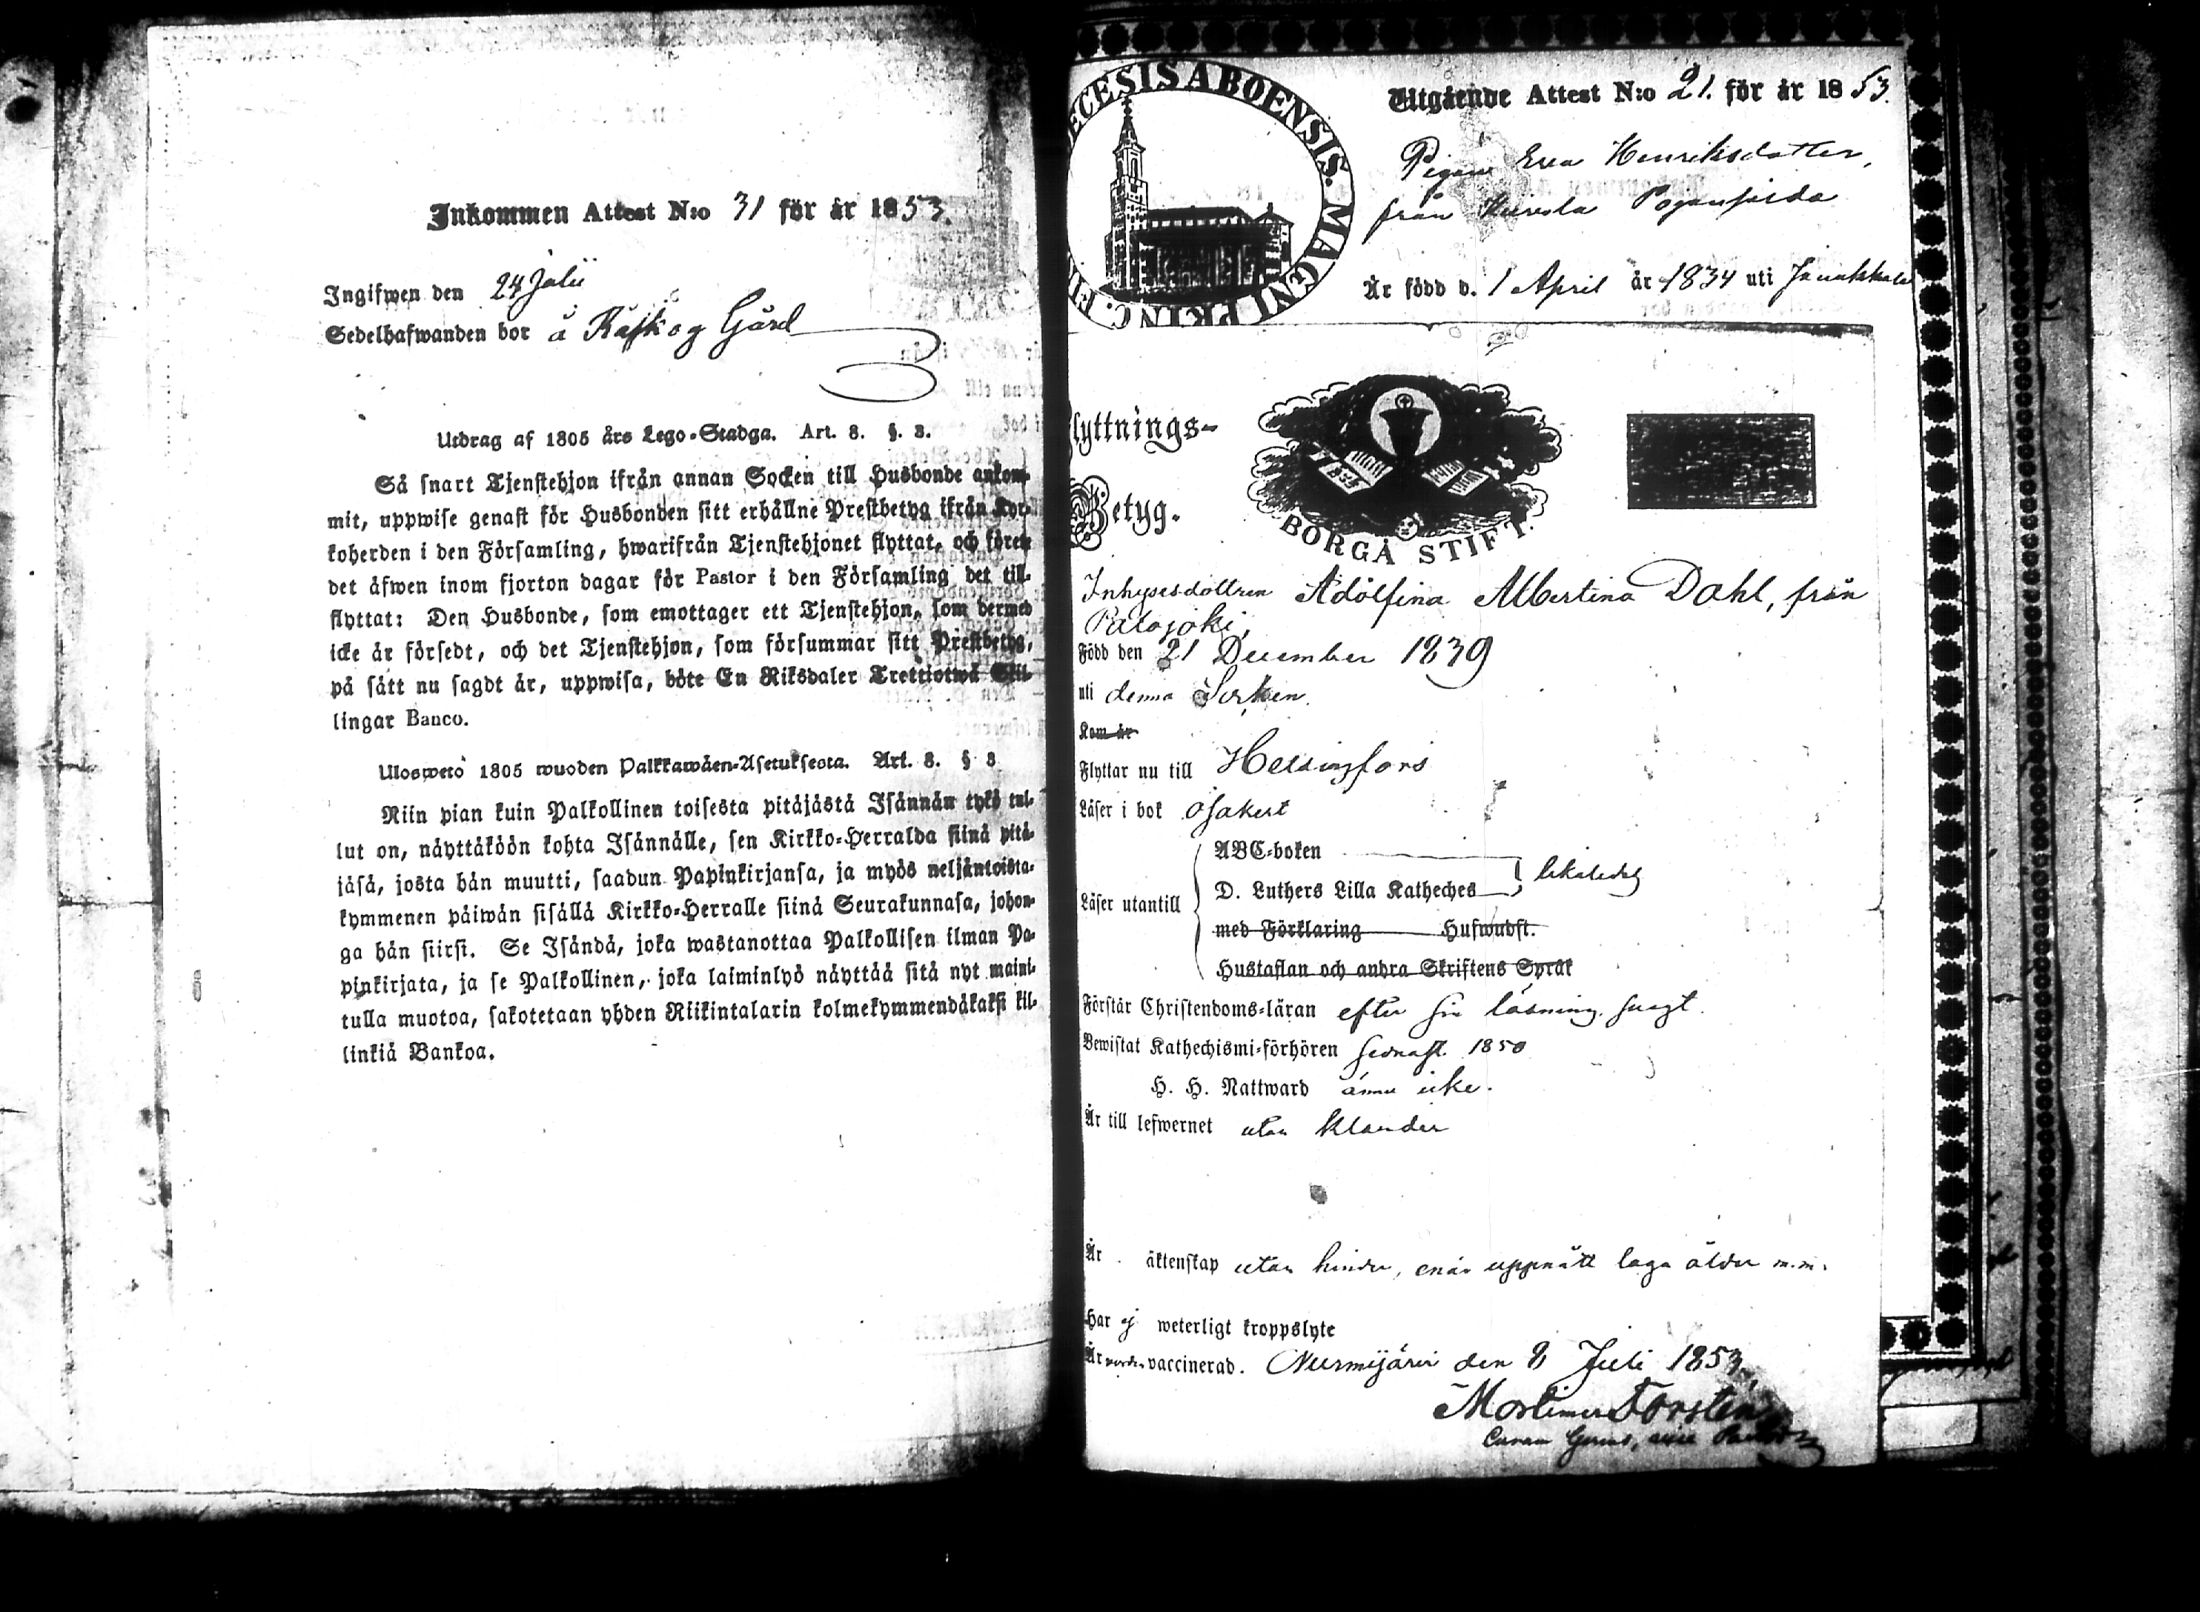 Inkommen Attest N:o 31 för år 1853.
Ingifwen den 24 Julii
Sedelhafwanden bor å Råskog Gård
Utdrag af 1805 års Lego-Stadga. Art. 8. §. 3.
Så snart Tjenstehjon ifrån annan Socken till Husbonde ankom-
mit, uppwise genast för Husbonden sitt erhållne Prestbetyg ifrån Kyr-
koherden i den Församling, hwarifrån Tjenstehjonet flyttat, och förete
det äfwen inom fjorton dagar för Pastor i den Församling det till-
flyttat: Den Husbonde, som emottager ett Tjenstehjon, som dermed
icke är försedt, och det Tjenstehjon, som försummar sitt Prestbetyg,
på sätt nu sagdt är, uppwisa, böte En Riksdaler Trettiotwå Skil-
lingar Banco.
Uloswetö 1805 wuoden Palkkawäen-Asetuksesta. Art. 8. § 3
Niin pian kuin Palkollinen toisesta pitäjästä Isännän tykö tul-
lut on, näyttäköön kohta Isännälle, sen Kirkko-Herralda siinä pitä-
jäsä, josta hän muutti, saadun Papinkirjansa, ja myös neljäntoista-
kymmenen päiwän sisällä Kirkko-Herralle siinä Seurakunnasa, johon-
ga hän siirsi. Se Isändä, joka wastanottaa Palkollisen ilman Pa-
pinkirjata, ja se Palkollinen, joka laiminlyö näyttää sitä nyt maini-
tulla muotoa, sakotetaan yhden Riikintalarin kolmekymmendäkaksi kil-
linkiä Bankoa.
ECESIS ABOENSIS. MAGNI PRINC. FI
Utgående Attest N:o 21. för år 1853.
Pigan Eva Henriksdotter,
från
Är född d. 1 April år 1834 uti Janakkala
lyttnings-
Betyg.
BORGÅ STIFT.
Inhysesdottren Adolfina Albertina Dahl, från
Palojoki,
Född den 21 December 1839
uti denna Socken.
Kom år
Flyttar nu till Helsingfors
Läser i bok osäkert
Läser utantill
ABC-boken
D. Luthers Lilla Katheches likaledes
med Förklaring Hufwudst.
Hustaflan och andra Skriftens Språk
Förstår Christendoms-läran efter sin läsning svagt.
Bewistat Kathechismi-förhören sednast 1850
H. H. Nattward ännu icke.
Är till lefwernet utan klander
Är äktenskap utan hinder, enär uppnått laga ålder m.m.
Har ej weterligt kroppslyte
Är vaccinerad. Nurmijärvi den 8 Juli 1853,
Mortimer Forstén